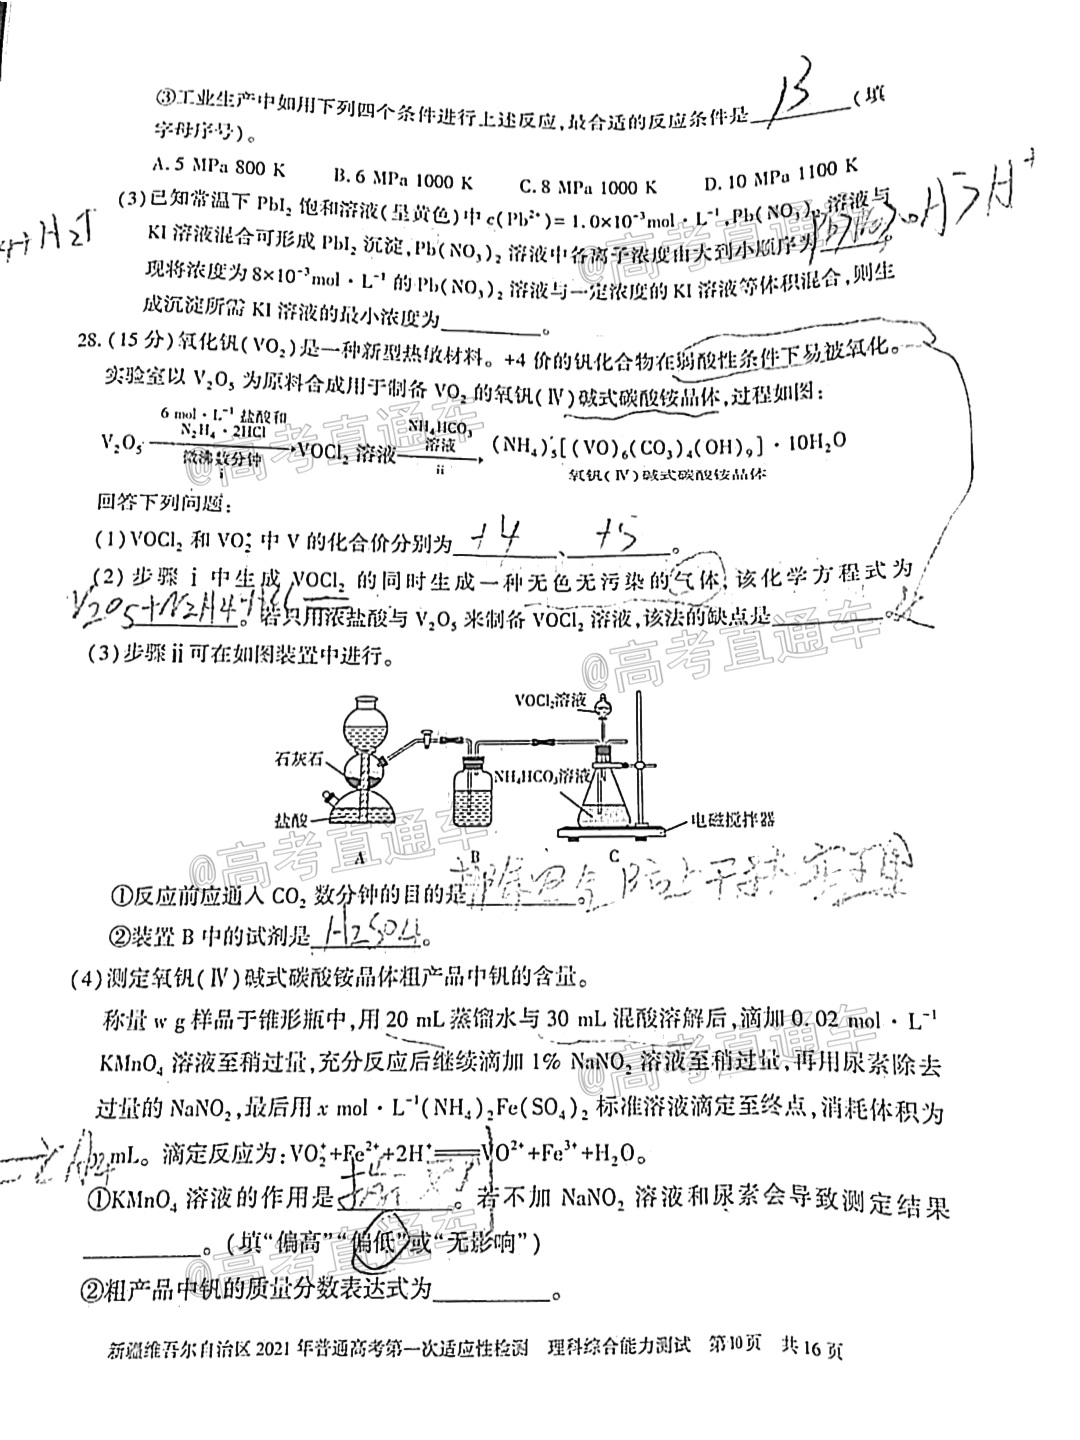 ③工业生产中如用下列四个条件进行上述反应,最合适的反应条件是 B (填
字母序号)。
A.5 MPa 800 K B.6 MPa 1000 K C.8 MPa 1000 K D.10 MPa 1100 K
(3)已知常温下 PbI₂ 饱和溶液(呈黄色)中 c(Pb²⁺)=1.0×10⁻³mol·L⁻¹,Pb(NO₃)₂ 溶液与
KI 溶液混合可形成 PbI₂ 沉淀,Pb(NO₃)₂ 溶液中各离子浓度由大到小顺序为
现将浓度为 8×10⁻³mol·L⁻¹ 的 Pb(NO₃)₂ 溶液与一定浓度的 KI 溶液等体积混合,则生
成沉淀所需 KI 溶液的最小浓度为________。
28.(15 分)氧化钒(VO₂)是一种新型热敏材料。+4 价的钒化合物在弱酸性条件下易被氧化。
实验室以 V₂O₅ 为原料合成用于制备 VO₂ 的氧钒(Ⅳ)碱式碳酸铵晶体,过程如图:
6 mol·L⁻¹ 盐酸和
N₂H₄·2HCl
NH₄HCO₃
溶液
V₂O₅ VOCl₂ 溶液 (NH₄)₅[(VO)₆(CO₃)₄(OH)₉]·10H₂O
微沸数分钟
i ii
氧钒(Ⅳ)碱式碳酸铵晶体
回答下列问题:
(1)VOCl₂ 和 VO₂⁺ 中 V 的化合价分别为 +4 、 +5 。
(2)步骤 i 中生成 VOCl₂ 的同时生成一种无色无污染的气体,该化学方程式为
V₂O₅+N₂H₄ 。若只用浓盐酸与 V₂O₅ 来制备 VOCl₂ 溶液,该法的缺点是________
(3)步骤 ii 可在如图装置中进行。
VOCl₂溶液
石灰石
NH₄HCO₃溶液
盐酸
电磁搅拌器
A B C
①反应前应通入 CO₂ 数分钟的目的是 排除空气 。
②装置 B 中的试剂是 H₂SO₄ 。
(4)测定氧钒(Ⅳ)碱式碳酸铵晶体粗产品中钒的含量。
称量 w g 样品于锥形瓶中,用 20 mL 蒸馏水与 30 mL 混酸溶解后,滴加 0.02 mol·L⁻¹
KMnO₄ 溶液至稍过量,充分反应后继续滴加 1% NaNO₂ 溶液至稍过量,再用尿素除去
过量的 NaNO₂,最后用 x mol·L⁻¹(NH₄)₂Fe(SO₄)₂ 标准溶液滴定至终点,消耗体积为
mL。滴定反应为:VO₂⁺+Fe²⁺+2H⁺══VO²⁺+Fe³⁺+H₂O。
①KMnO₄ 溶液的作用是 。若不加 NaNO₂ 溶液和尿素会导致测定结果
________。(填“偏高”“偏低”或“无影响”)
②粗产品中钒的质量分数表达式为________。
新疆维吾尔自治区 2021 年普通高考第一次适应性检测 理科综合能力测试 第10页 共16页
@高考直通车
@高考直通车
@高考直通车
@高考直通车
@高考直通车
@高考直通车